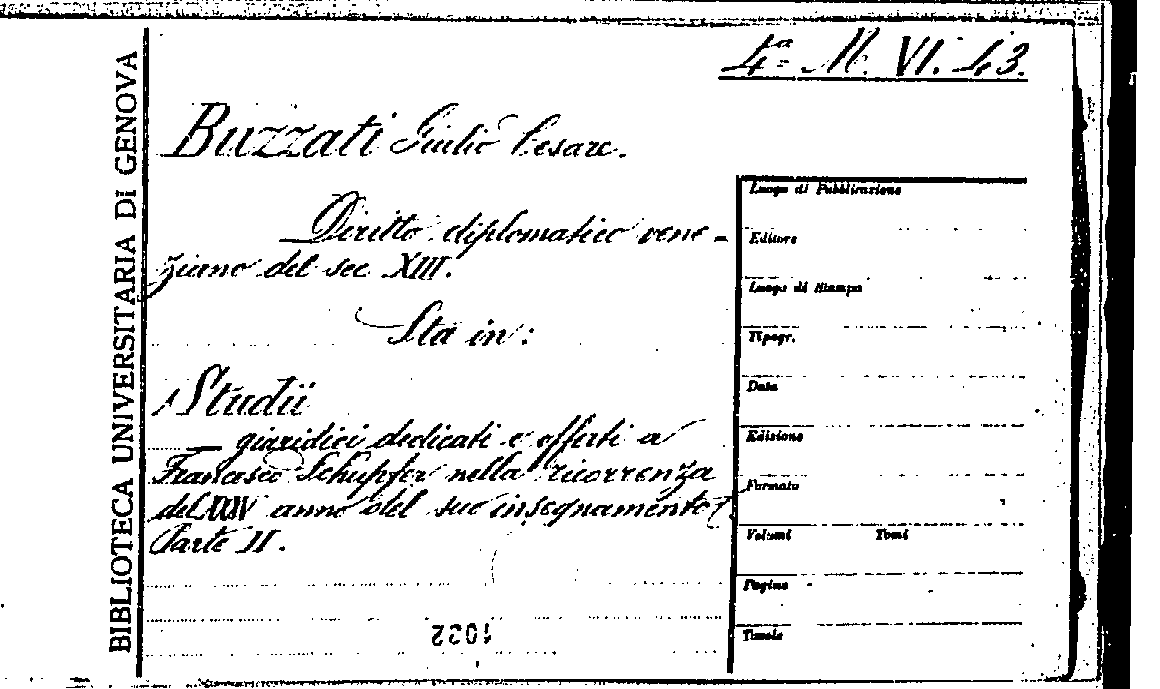 4ª M. VI. 43.
BIBLIOTECA UNIVERSITARIA DI GENOVA
Buzzati Giulio Cesare.
Diritto diplomatico vene-
ziano del sec. XIII.
Sta in:
Studii
giuridici dedicati e offerti a
Francesco Schupfer nella ricorrenza
del XXXV anno del suo insegnamento
Parte II.
1032
Luogo di Pubblicazione
Editore
Luogo di Stampa
Tipogr.
Data
Edizione
Formato
Volumi Tomi
Pagine
Tavole